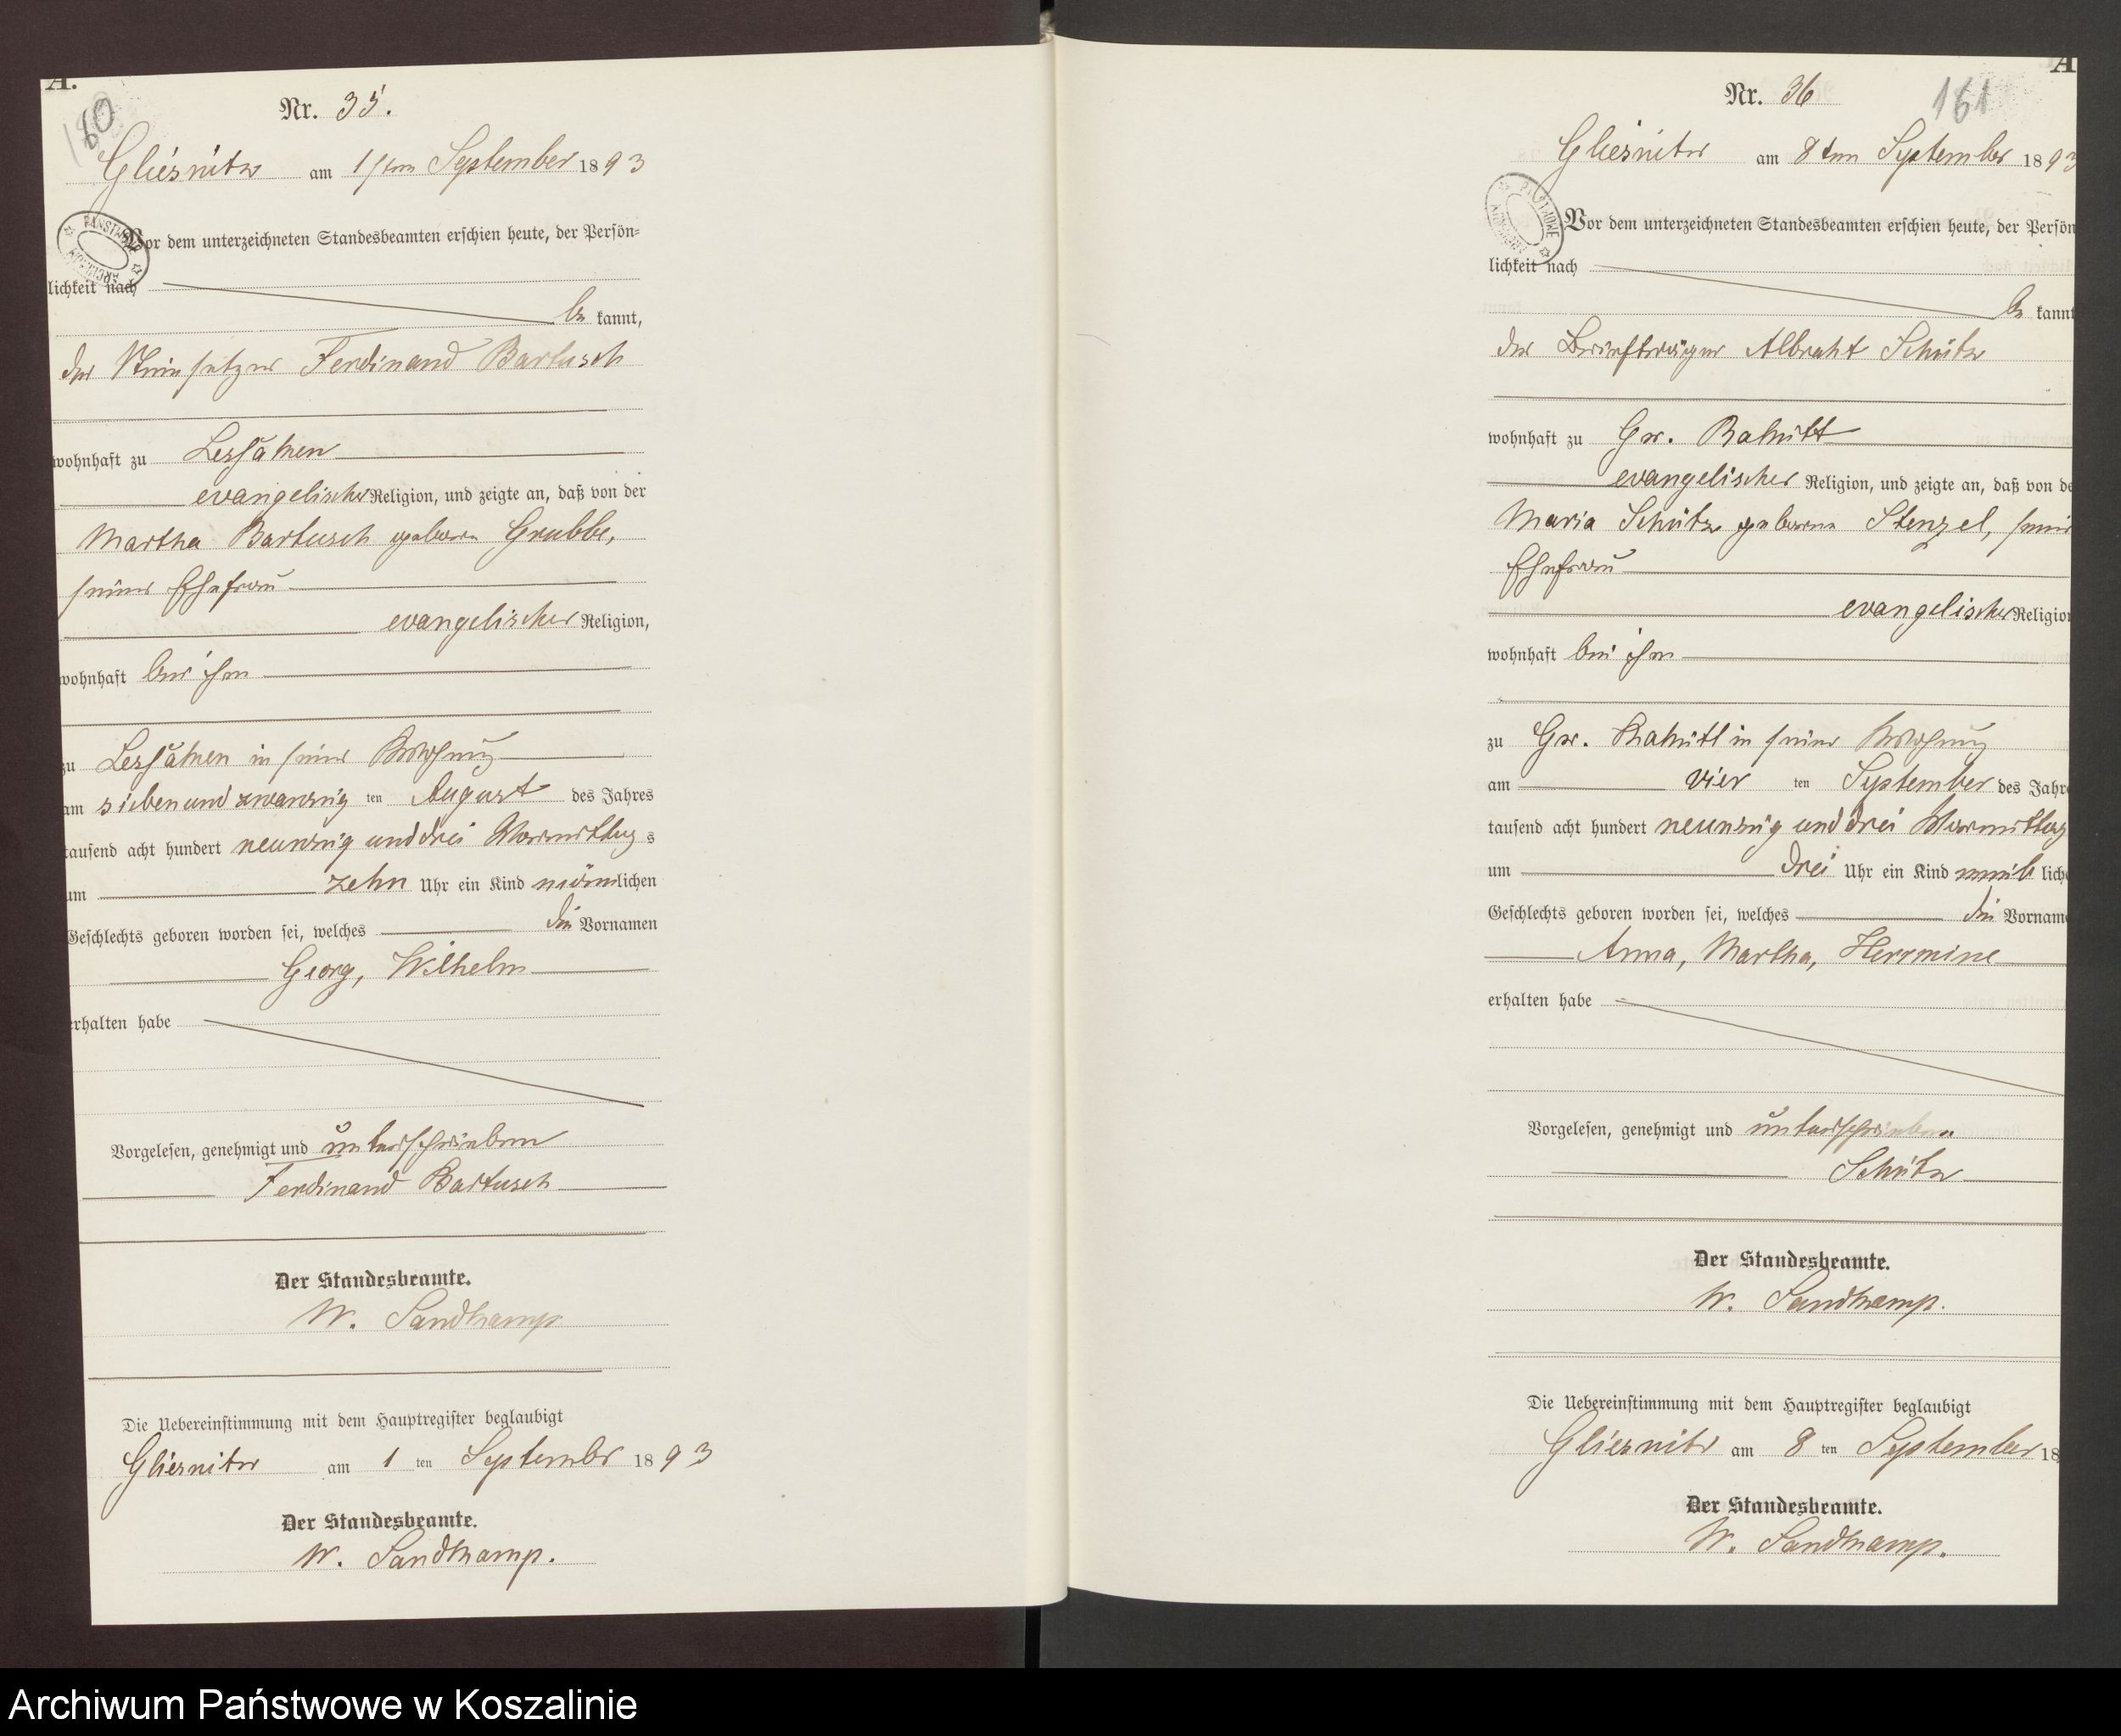 A.
180
Nr. 35.
Gliesnitz am 1ten September 1893
Vor dem unterzeichneten Standesbeamten erschien heute, der Persön-
lichkeit nach
be kannt,
der Steinsetzer Ferdinand Bartusch
wohnhaft zu Lessaken
evangelischer Religion, und zeigte an, daß von der
Martha Bartusch geborn Grubbe,
seiner Ehefrau
evangelischer Religion,
wohnhaft bei ihm
zu Lessaken in seiner Wohnung
am siebenundzwanzig ten August des Jahres
tausend acht hundert neunzig und drei Vormittag s
um zehn Uhr ein Kind männlichen
Geschlechts geboren worden sei, welches die Vornamen
Georg, Wilhelm
erhalten habe
Vorgelesen, genehmigt und unterschrieben
Ferdinand Bartusch
Der Standesbeamte.
W. Sandkamp
Die Uebereinstimmung mit dem Hauptregister beglaubigt
Gliesnitz am 1 ten September 1893
Der Standesbeamte.
W. Sandkamp.
A
161
Nr. 36
Gliesnitz am 8ten September 1893
Vor dem unterzeichneten Standesbeamten erschien heute, der Persön
lichkeit nach
be kannt
der Briefträger Albrecht Schütz
wohnhaft zu Gr. Rakitt
evangelischer Religion, und zeigte an, daß von de
Maria Schütz geborene Stenzel, seine
Ehefrau
evangelischer Religion
wohnhaft bei ihm
zu Gr. Rakitt in seiner Wohnung
am vier ten September des Jahre
tausend acht hundert neunzig und drei Vormittag
um drei Uhr ein Kind weib liche
Geschlechts geboren worden sei, welches die Vorname
Anna, Martha, Herrmine
erhalten habe
Vorgelesen, genehmigt und unterschrieben
Schütz
Der Standesbeamte.
W. Sandkamp.
Die Uebereinstimmung mit dem Hauptregister beglaubigt
Gliesnitz am 8 ten September 18
Der Standesbeamte.
W. Sandkamp.
Archiwum Państwowe w Koszalinie